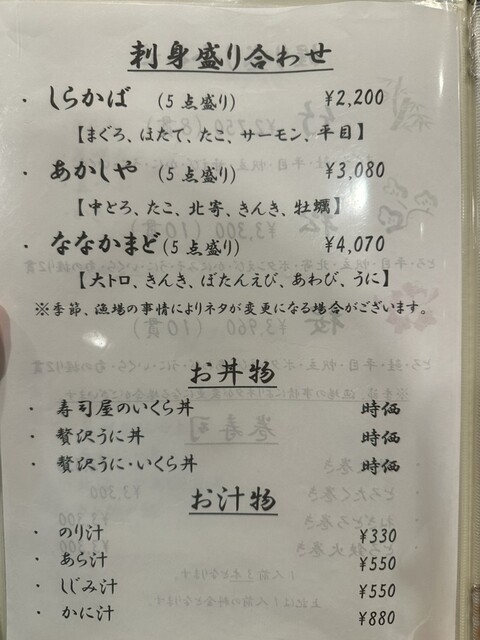 刺身盛り合わせ
・しらかば (5点盛り) ¥2,200
【まぐろ、ほたて、たこ、サーモン、平目】
・あかしや (5点盛り) ¥3,080
【中とろ、たこ、北寄、きんき、牡蠣】
・ななかまど(5点盛り) ¥4,070
【大トロ、きんき、ぼたんえび、あわび、うに】
※季節、漁場の事情によりネタが変更になる場合がございます。
お丼物
・寿司屋のいくら丼 時価
・贅沢うに丼 時価
・贅沢うに・いくら丼 時価
お汁物
・のり汁 ¥330
・あら汁 ¥550
・しじみ汁 ¥550
・かに汁 ¥880